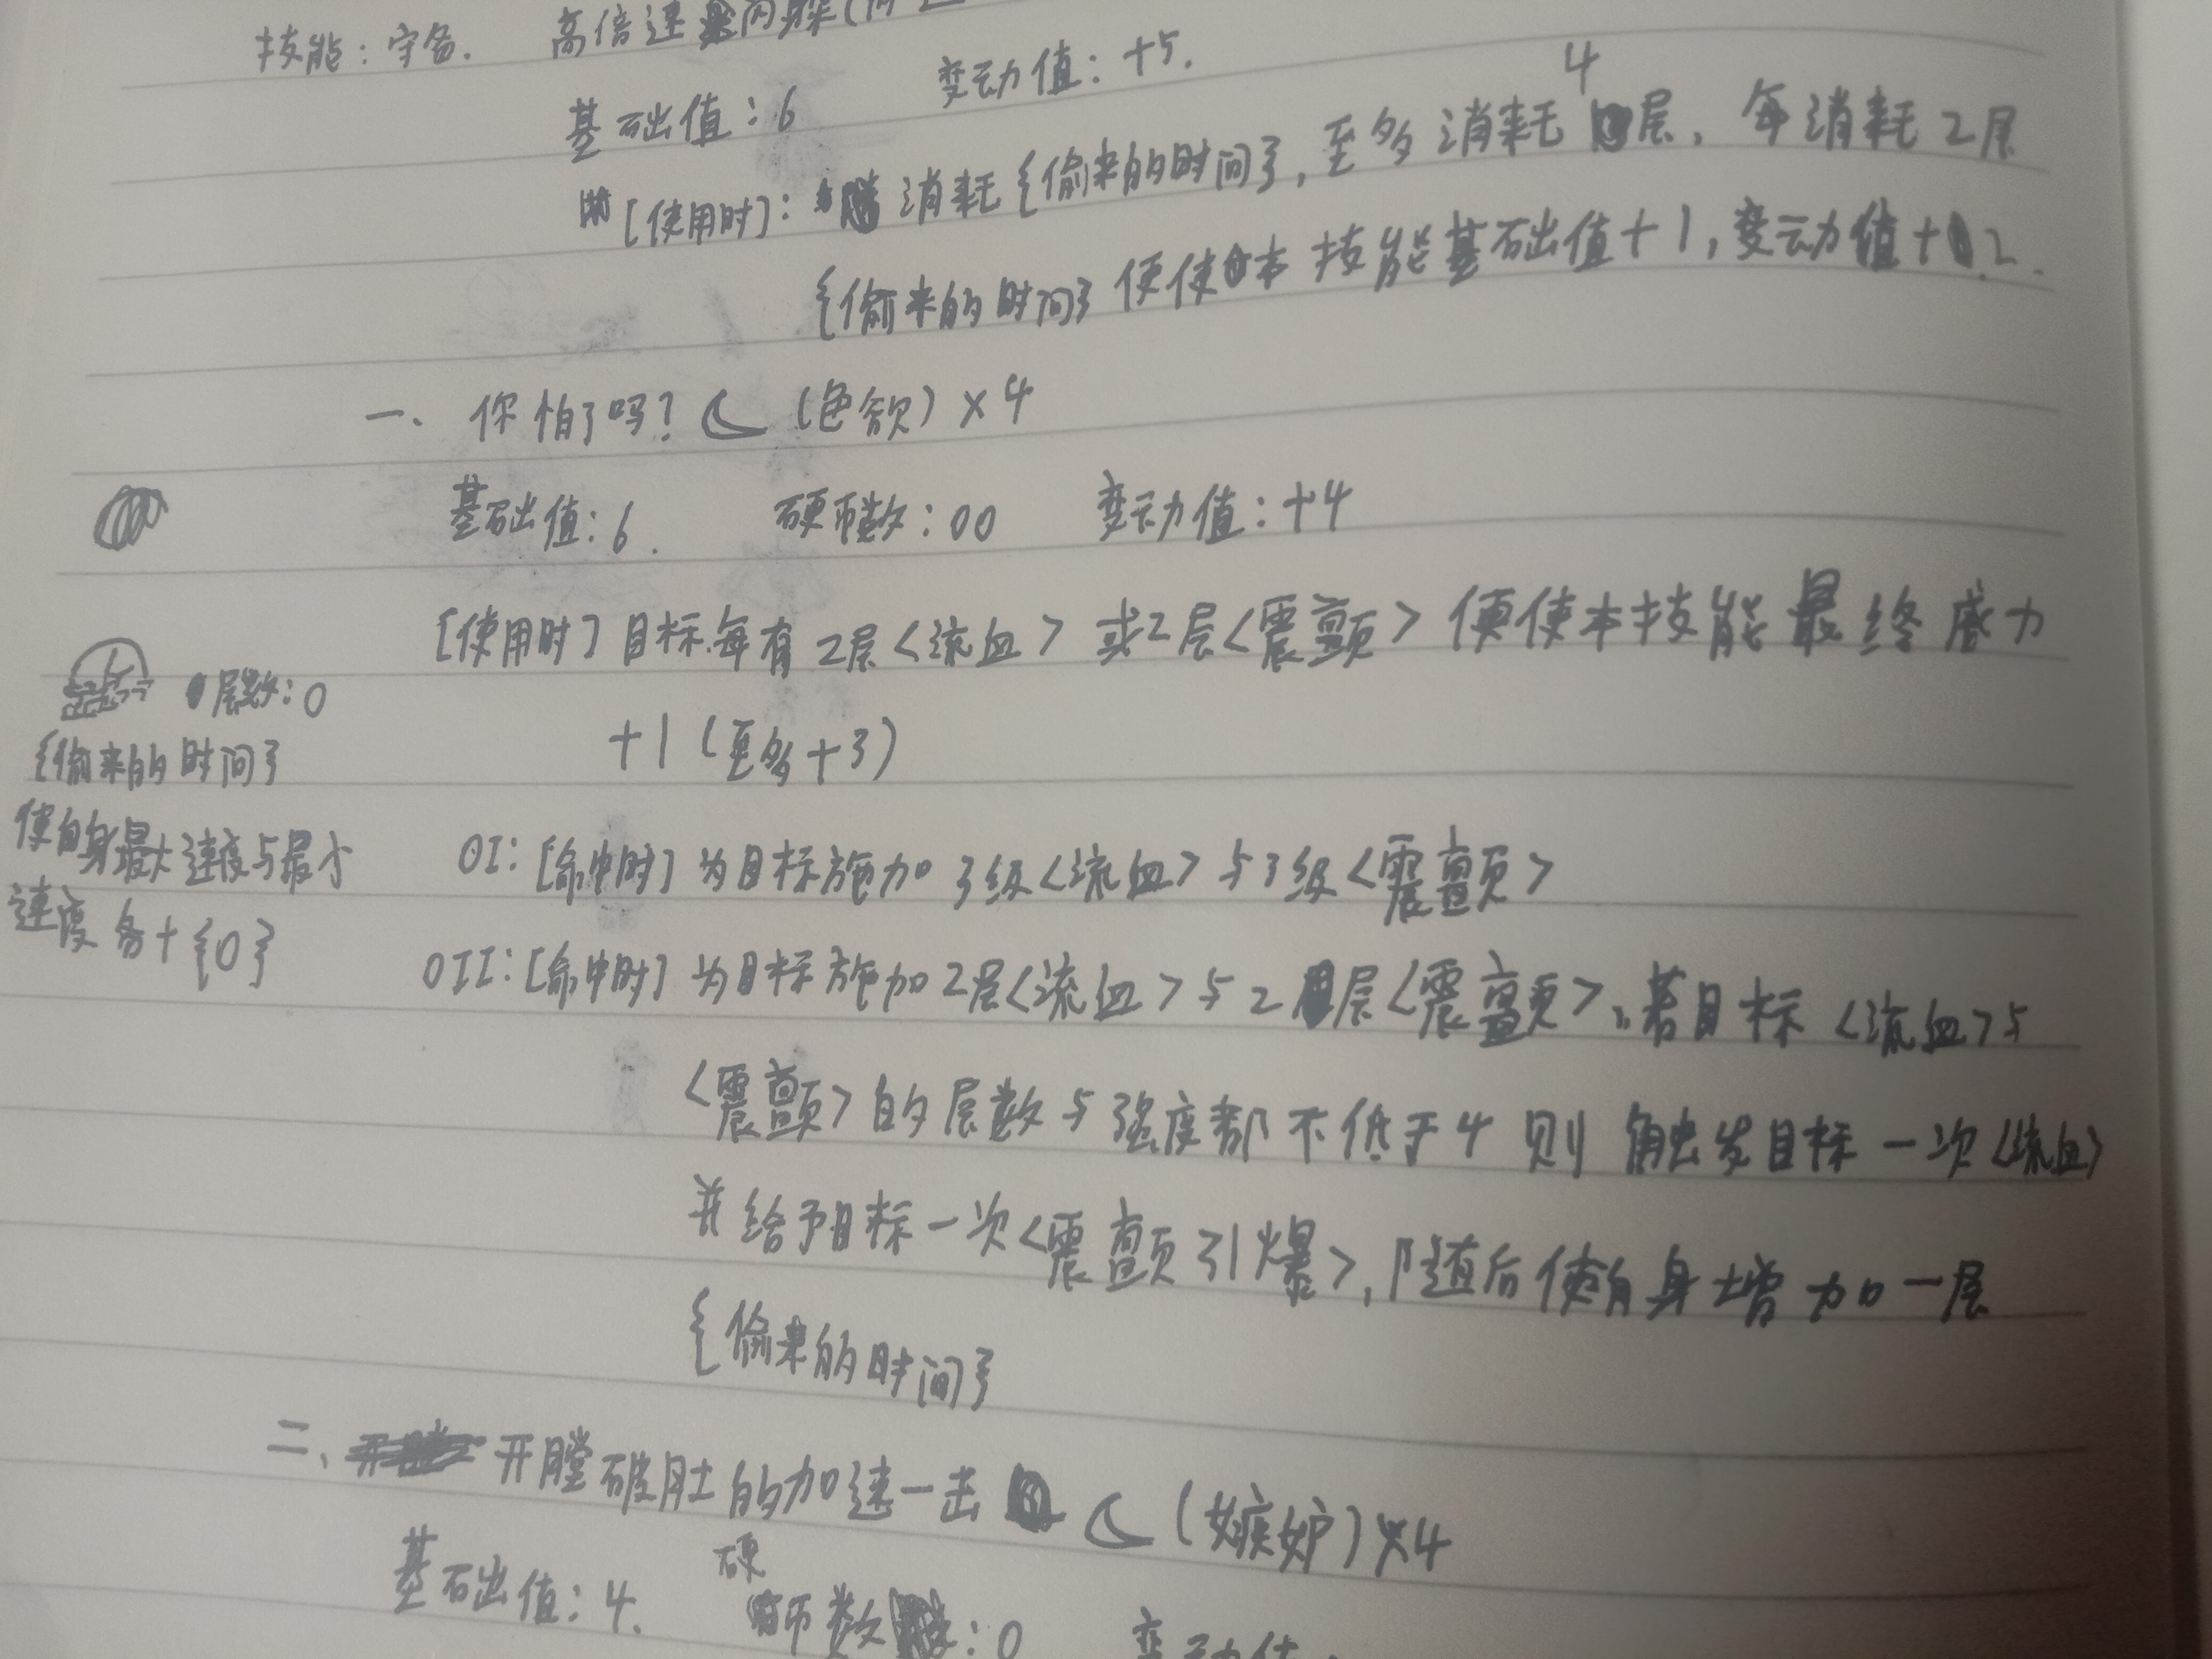 技能：守备. 高倍速闪躲(
基础值：6 变动值：+5.
[使用时]：消耗{偷来的时间}，至多消耗4层，每消耗2层
{偷来的时间}便使本技能基础值+1，变动值+2.
一、你怕了吗？(色欲)×4
基础值：6. 硬币数：00 变动值：+4
[使用时]目标每有2层<流血>或2层<震颤>便使本技能最终威力
+1(至多+3)
层数：0
{偷来的时间}
使自身最大速度与最小
速度各+{0}
OI：[命中时]为目标施加3级<流血>与3级<震颤>
OII：[命中时]为目标施加2层<流血>与2层<震颤>，若目标<流血>与
<震颤>的层数与强度都不低于4则触发目标一次<流血>
并给予目标一次<震颤引爆>，随后使自身增加一层
{偷来的时间}
二、开膛破肚的加速一击(嫉妒)×4
基础值：4. 硬币数：0 变动值：